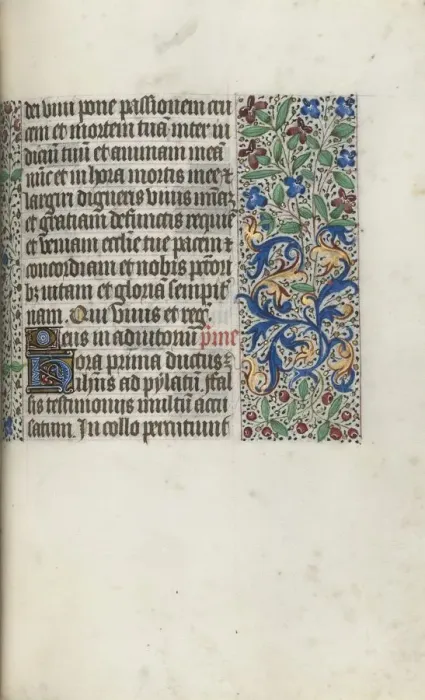 dei viui pone passionem cru
cem et mortem tuā inter iu
diciū tuū et animam meā
nūc et in hora mortis mee et
largiri digneris viuis mīaz
et gratiam defunctis requiē
et veniam ecclie tue pacem et
concordiam et nobis pctori
bz vitam et gloriā sempit
nam. Qui viuis et reg.
Deus in adiutoriū
Hora prima ductus ē
ihus ad pylatū fal
sis testimonijs multū accu
satum. In collo percutiunt